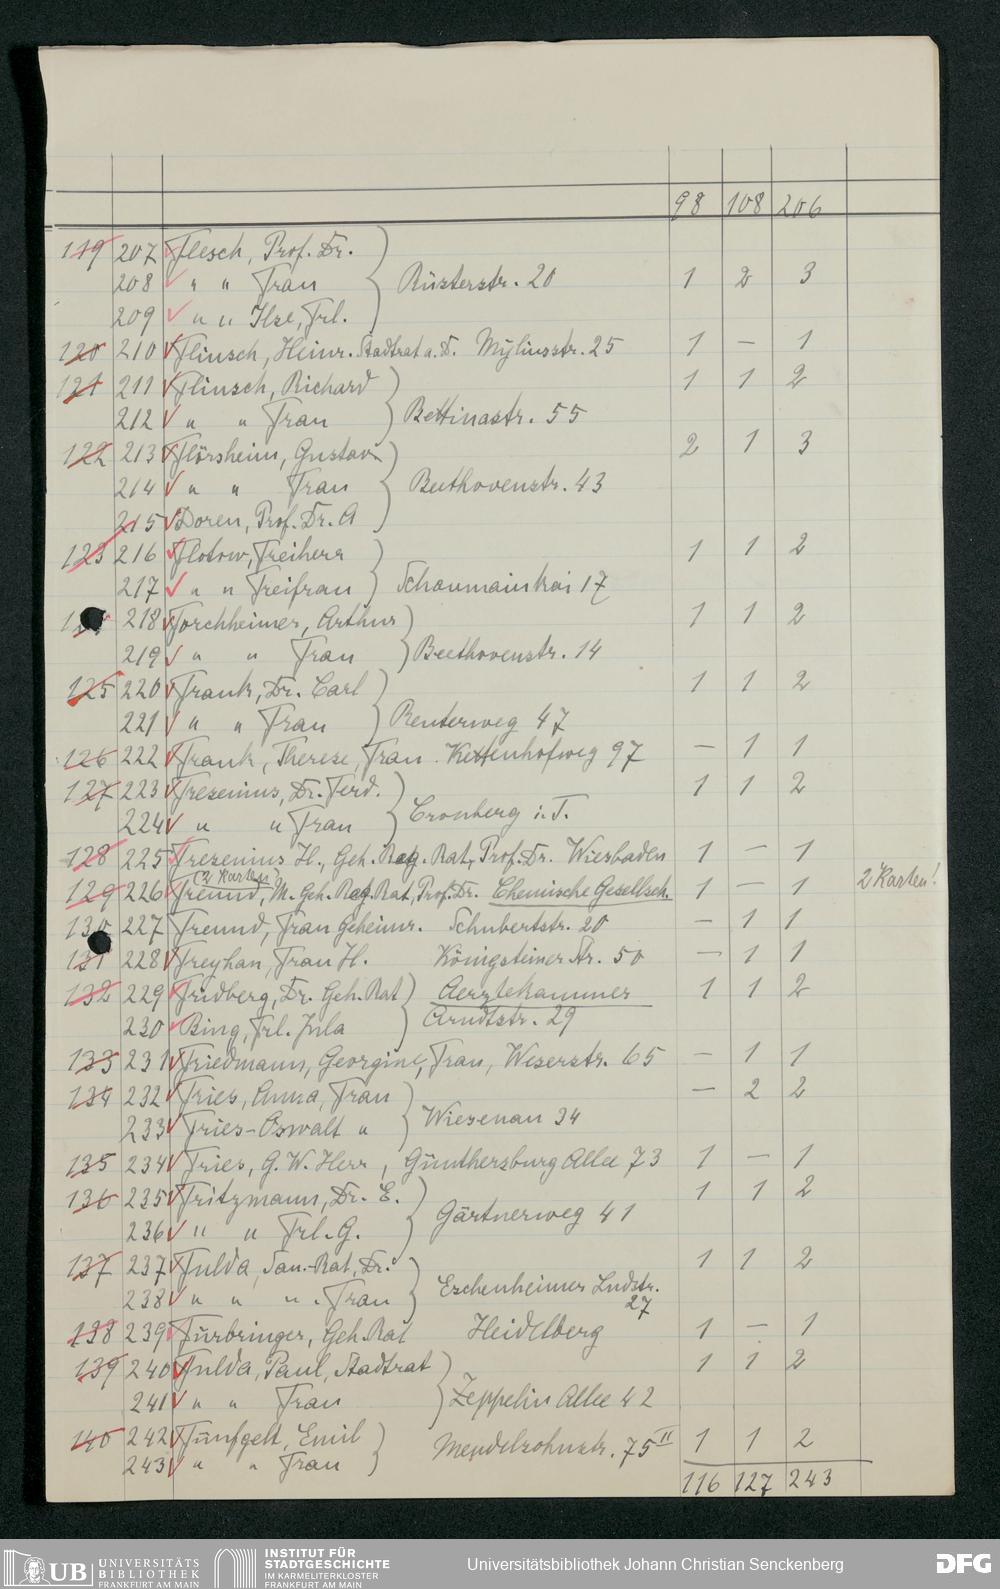 98 108 206
119 207 Flesch, Prof. Dr.
208 " " Frau Rüsterstr. 20 1 2 3
209 " " Ilse, Frl.
120 210 Flinsch, Heinr. Stadtrat a. D. Myliusstr. 25 1 — 1
121 211 Flinsch, Richard 1 1 2
212 " " Frau Bettinastr. 55
122 213 Flörsheim, Gustav 2 1 3
214 " " Frau Beethovenstr. 43
215 Doren, Prof. Dr. A
123 216 Flotow, Freiherr 1 1 2
217 " " Freifrau Schaumainkai 17
218 Forchheimer, Arthur 1 1 2
219 " " Frau Beethovenstr. 14
125 220 Frank, Dr. Carl 1 1 2
221 " " Frau Reuterweg 47
126 222 Frank, Therese, Frau. Kettenhofweg 97 — 1 1
127 223 Fresenius, Dr. Ferd. 1 1 2
224 " " Frau Cronberg i. T.
128 225 Fresenius H., Geh. Reg. Rat, Prof. Dr. Wiesbaden 1 — 1
(2 Karten)
129 226 Freund, M. Geh. Reg. Rat, Prof. Dr. Chemische Gesellsch. 1 — 1 2 Karten!
130 227 Freund, Frau Geheimr. Schubertstr. 20 — 1 1
131 228 Freyhan, Frau H. Königsteiner Str. 50 — 1 1
132 229 Fridberg, Dr. Geh. Rat Aerztekammer 1 1 2
230 Bing, Frl. Jula Arndtstr. 29
133 231 Friedmann, Georgine, Frau, Weserstr. 65 — 1 1
134 232 Fries, Anna, Frau — 2 2
233 Fries-Oswalt " Wiesenau 34
135 234 Fries, G. W. Herr, Günthersburg Allee 73 1 — 1
136 235 Fritzmann, Dr. E. 1 1 2
236 " " Frl. G. Gärtnerweg 41
137 237 Fulda, San.-Rat, Dr. 1 1 2
238 " " " . Frau Eschenheimer Lndstr.
27
138 239 Fürbringer, Geh. Rat Heidelberg 1 — 1
139 240 Fulda, Paul, Stadtrat 1 1 2
241 " " Frau Zeppelin Allee 42
140 242 Fünfgelt, Emil Mendelsohnstr. 75 II 1 1 2
243 " " Frau
116 127 243
UB UNIVERSITÄTS
BIBLIOTHEK
FRANKFURT AM MAIN
INSTITUT FÜR
STADTGESCHICHTE
IM KARMELITERKLOSTER
FRANKFURT AM MAIN
Universitätsbibliothek Johann Christian Senckenberg
DFG